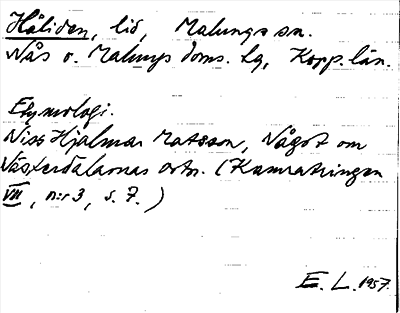 Håliden, lid, Malungs sn.
Nås o. Malungs doms. hg, Kopp. län.
Etymologi.
Niss Hjalmar Matsson, Något om
Västerdalarnas ortn. (Kamratringen
VIII, n:r 3, s. 7.)
E. L. 1957.